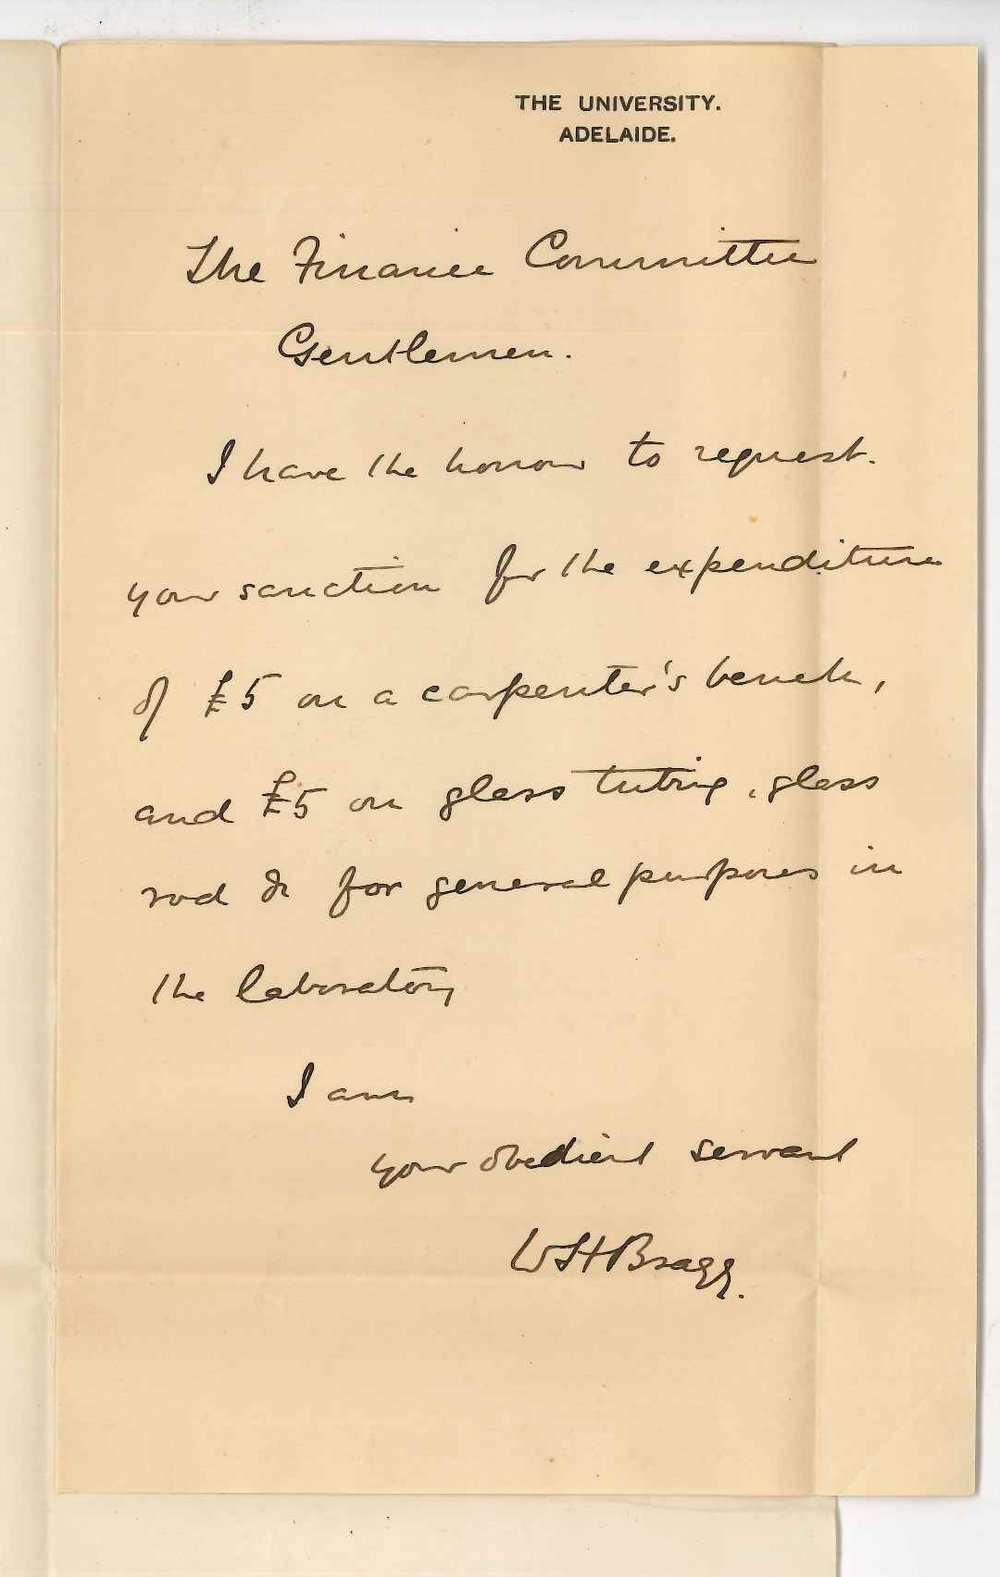 THE UNIVERSITY.
ADELAIDE.
The Finance Committee
Gentlemen.
I have the honour to request.
your sanction for the expenditure
of £5 on a carpenter's bench,
and £5 on glass tubing, glass
rod &c for general purposes in
the laboratory
I am
your obedient servant
WHBragg.